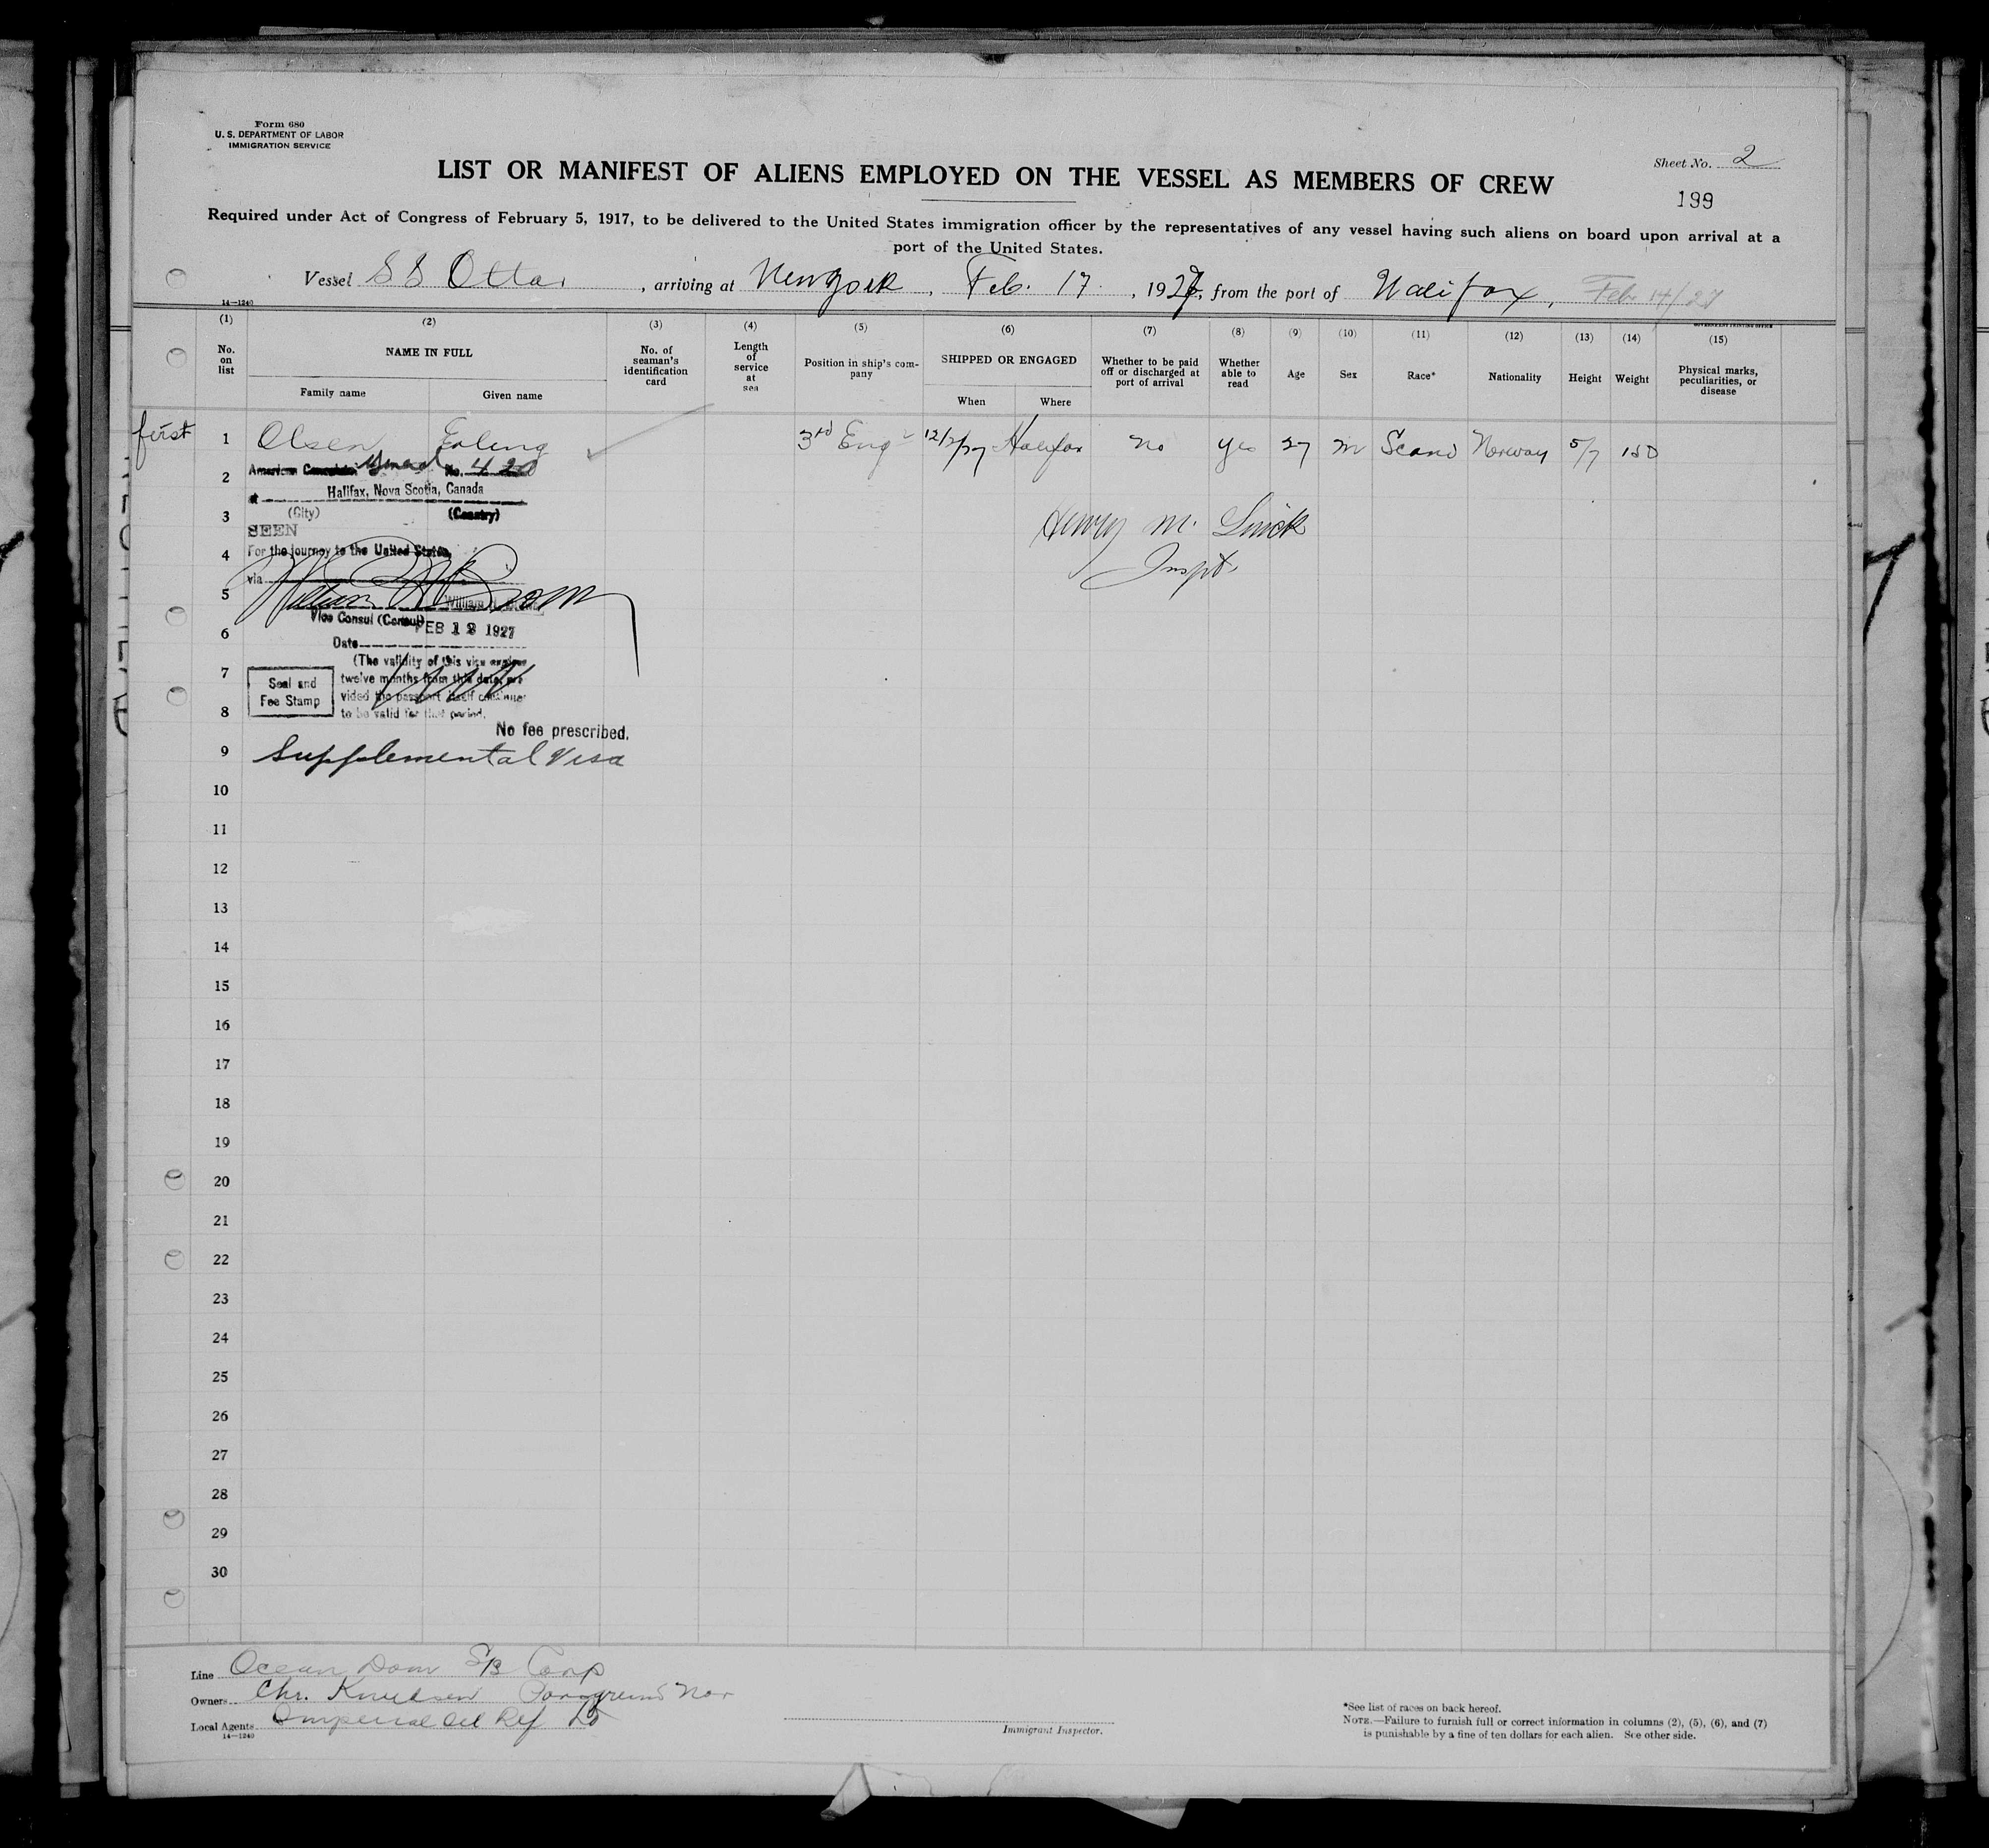 Form 680
U. S. DEPARTMENT OF LABOR
IMMIGRATION SERVICE
Sheet No. 2
LIST OR MANIFEST OF ALIENS EMPLOYED ON THE VESSEL AS MEMBERS OF CREW
199
Required under Act of Congress of February 5, 1917, to be delivered to the United States immigration officer by the representatives of any vessel having such aliens on board upon arrival at a
port of the United States.
Vessel S S Ottar, arriving at New York, Feb. 17, 1927, from the port of Halifax, Feb 14/27
14—1240
GOVERNMENT PRINTING OFFICE
(1) (2) (3) (4) (5) (6) (7) (8) (9) (10) (11) (12) (13) (14) (15)
No. on list
NAME IN FULL
Family name
Given name
No. of seaman's identification card
Length of service at sea
Position in ship's company
SHIPPED OR ENGAGED
When
Where
Whether to be paid off or discharged at port of arrival
Whether able to read
Age
Sex
Race*
Nationality
Height
Weight
Physical marks, peculiarities, or disease
first 1 Olsen Erling 3rd Eng 12/2/27 Halifax No Yes 27 M Scand Norway 5/7 150
2
American Consulate General No. 420
Halifax, Nova Scotia, Canada
3
(City) (Country)
SEEN
Henry M.
Inspt.
4
For the journey to the United States,
via
5
6
Vice Consul (Consul)
FEB 12 1927
Date
7
(The validity of this visa expires
twelve months from this date, pro
vided the passport itself continues
to be valid for that period.
Seal and
Fee Stamp
8
No fee prescribed.
9 Supplemental Visa
10
11
12
13
14
15
16
17
18
19
20
21
22
23
24
25
26
27
28
29
30
Line Ocean Dom S/S Corp
Owners Chr. Knudsen Nor
Local Agents Imperial Oil Ref Ltd
14—1240
Immigrant Inspector.
*See list of races on back hereof.
NOTE.—Failure to furnish full or correct information in columns (2), (5), (6), and (7)
is punishable by a fine of ten dollars for each alien. See other side.